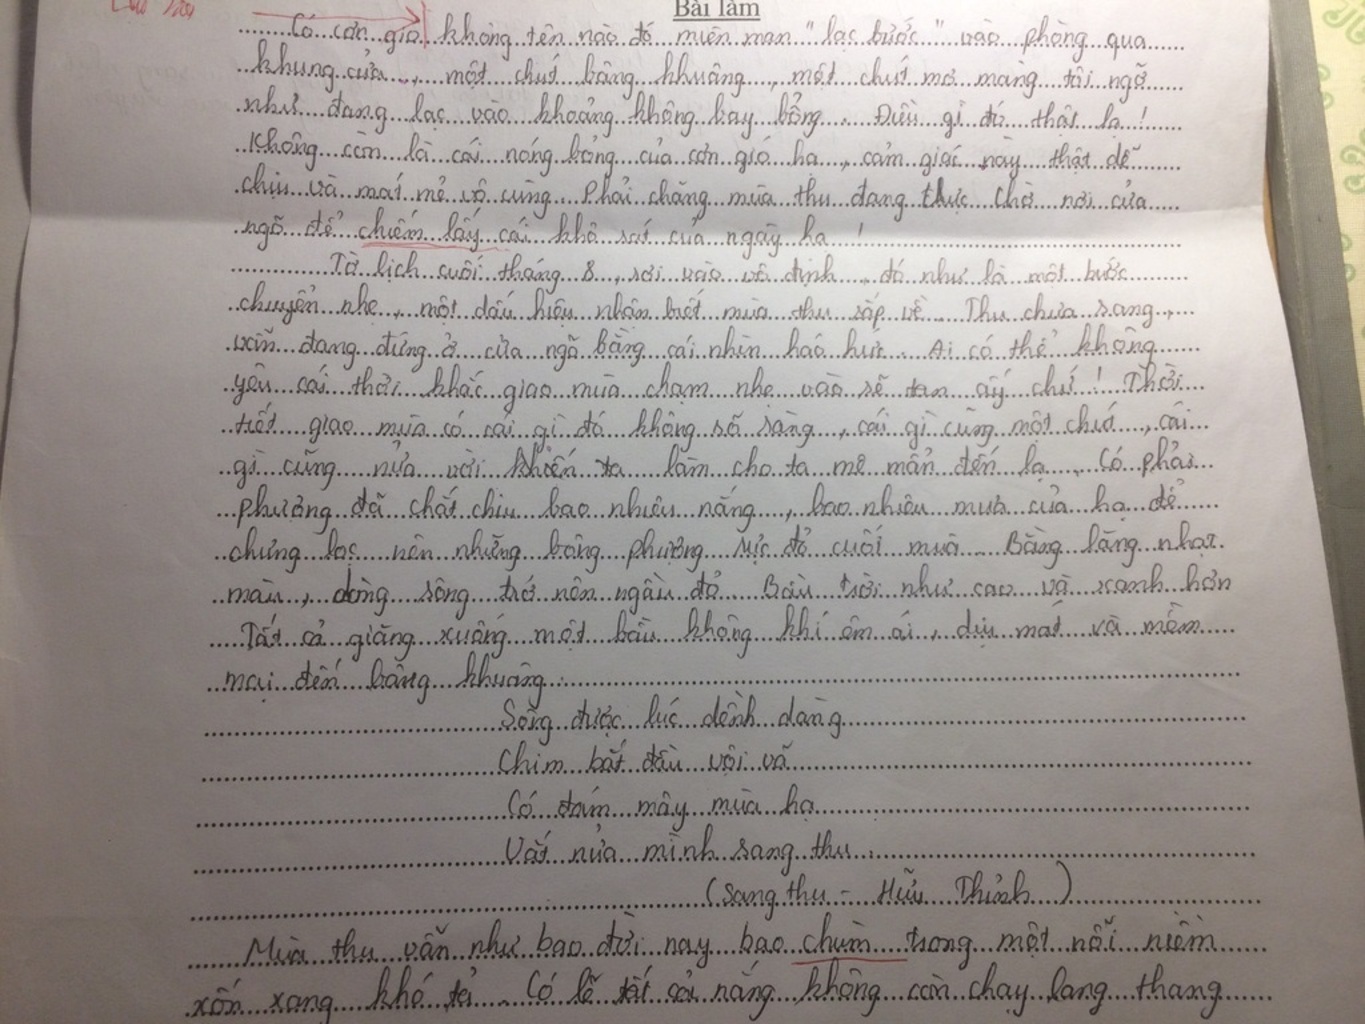 Bài làm
Có cơn gió không tên nào đó miên man "lạc bước" vào phòng qua
khung cửa, một chút bâng khuâng, một chút mơ màng tôi ngỡ
như đang lạc vào khoảng không bay bổng. Điều gì đó thật lạ!
Không còn là cái nóng bỏng của cơn gió hạ, cảm giác này thật dễ
chịu và mát mẻ vô cùng. Phải chăng mùa thu đang thực chờ nơi cửa
ngõ để chiếm lấy cái khô rát của ngày hạ!
Tờ lịch cuối tháng 8, rơi vào vô định, đó như là một bước
chuyển nhẹ, một dấu hiệu nhận biết mùa thu sắp về. Thu chưa sang,
vẫn đang đứng ở cửa ngõ bằng cái nhìn háo hức. Ai có thể không
yêu cái thời khắc giao mùa chạm nhẹ vào sẽ tan ấy chứ! Thời
tiết giao mùa có cái gì đó không sỗ sàng, cái gì cũng một chút, cái
gì cũng nửa vời khiến ta làm cho ta mê mẩn đến lạ. Có phải
phượng đã chắt chiu bao nhiêu nắng, bao nhiêu mưa của hạ để
chưng lọc nên những bông phượng rực đỏ cuối mùa. Bằng lăng nhạt
màu, dòng sông trở nên ngầu đỏ. Bầu trời như cao và xanh hơn
Tất cả giăng xuống một bầu không khí êm ái, dịu mát và mềm
mại đến bâng khuâng.
Sông được lúc dềnh dàng
Chim bắt đầu vội vã
Có đám mây mùa hạ
Vắt nửa mình sang thu.
(Sang thu - Hữu Thỉnh)
Mùa thu vẫn như bao đời nay bao chùm trong một nỗi niềm
xốn xang khó tả. Có lẽ tất cả nắng không còn chạy lang thang